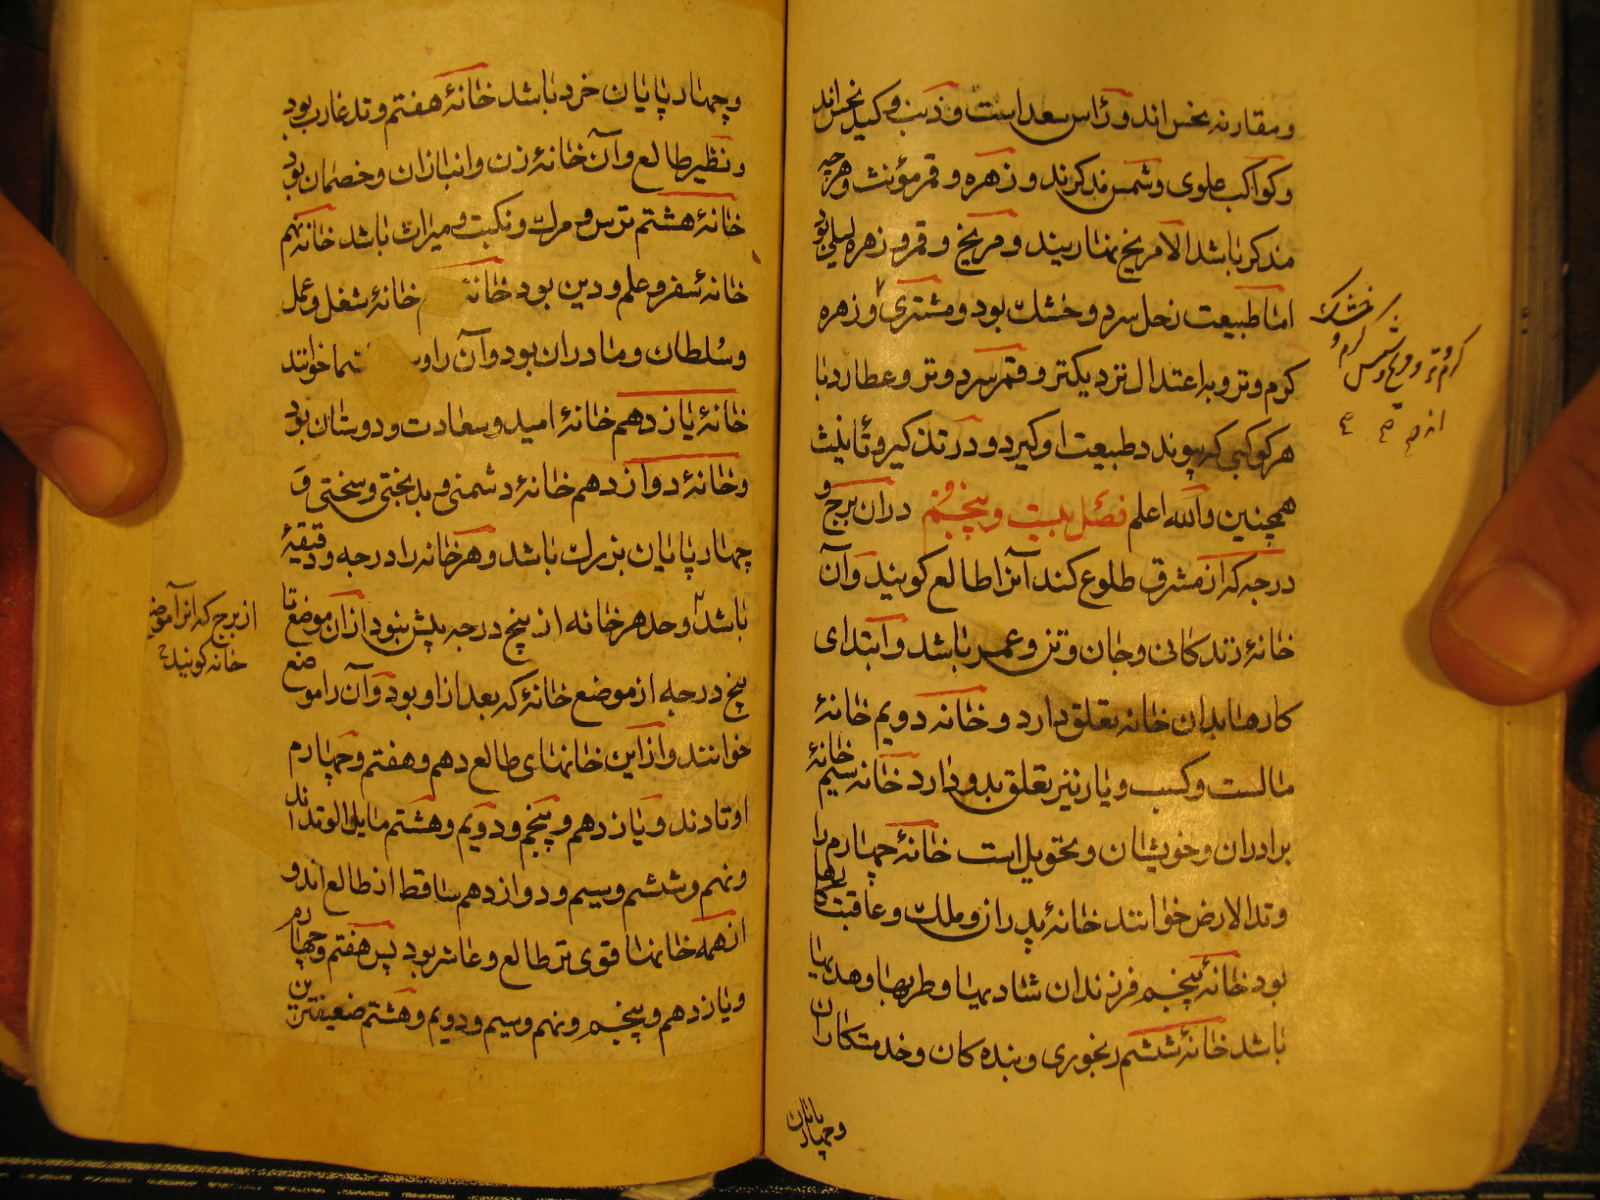 ومقارنه نحس اند وراس سعد است وذنب وکید نحس اند
وکواکب علوی وشمس مذکرند وزهره وقمر مؤنث وهرچه
مذکر باشد الامریخ نهاریند ومریخ وقمر وزهره لیلی بود
اما طبیعت زحل سرد وخشک بود ومشتری وزهره
کرم وتر وبه اعتدال نزدیکتر وقمر سرد وتر وعطارد با
هر کوکبی که پیوندد طبیعت او کیرد ودر تذکیر وتأنیث
همچنین والله اعلم فصل بیست وپنجم دران برج و
درجه که از مشرق طلوع کند آنرا طالع کویند وآن
خانهٔ زندکانی وجان وتن وعمر باشد وابتدای
کارها بدان خانه تعلق دارد وخانه دویم خانهٔ
مالست وکسب ویار نیز تعلق بدو دارد خانه سیم خانهٔ
برادران وخویشان وتحویل است خانهٔ چهارم را
وتد الارض خوانند خانهٔ پدران وملک وعاقبت کارها
بود خانهٔ پنجم فرزندان شادیها وطربها وهدیها
باشد خانهٔ ششم رنجوری وبنده کان وخدمتکاران
وچهارپایان
خشک
کرم وتر ومریخ وشمس کرم و
وچهارپایان خرد باشد خانهٔ هفتم وتد غارب بود
ونظیر طالع وآن خانهٔ زن وانبازان وخصمان بود
خانهٔ هشتم ترس ومرک ونکبت ومیراث باشد خانه نهم
خانهٔ سفر وعلم ودین بود خانه خانهٔ شغل وعمل
وسلطان ومادران بود وآن را خوانند
خانهٔ یازدهم خانهٔ امید وسعادت ودوستان بود
وخانهٔ دوازدهم خانهٔ دشمنی وبدبختی وسختی و
چهارپایان بزرک باشد وهر خانه را درجه ودقیقهٔ
باشد وحد هر خانه از پنج درجه پیش بود ازان موضع تا
پنج درجه از موضع خانهٔ که بعد از او بود وآن را موضع
خوانند وازین خانهای طالع دهم وهفتم وچهارم
اوتادند ویازدهم وپنجم ودویم وهشتم مایلوالوتد اند
ونهم وششم وسیم ودوازدهم ساقط از طالع اند و
ازهمه خانها قوی تر طالع وعاشر بود پس هفتم وچهارم
ویازدهم وپنجم ونهم وسیم ودویم وهشتم ضعیفترین
از برج که آنرا موضع
خانه کویند